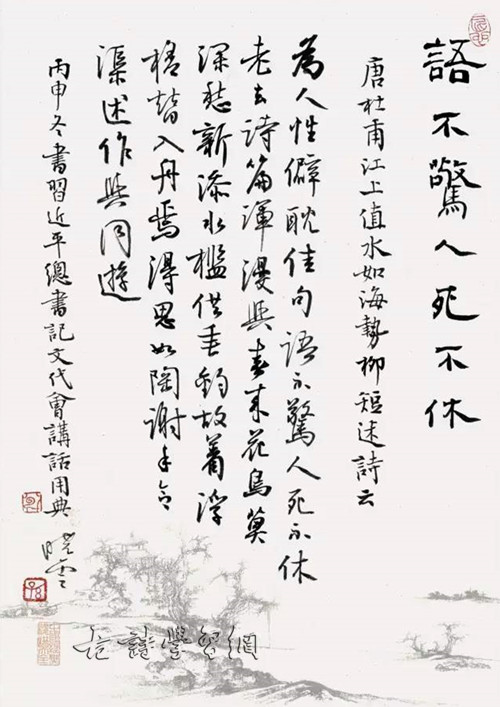 語不驚人死不休
唐杜甫江上值水如海勢聊短述詩云
為人性僻耽佳句語不驚人死不休
老去詩篇渾漫與春來花鳥莫
深愁新添水檻供垂釣故著浮
槎替入舟焉得思如陶謝手令
渠述作與同遊
丙申冬書習近平總書記文代會講話用典
曉雲
詩學習網